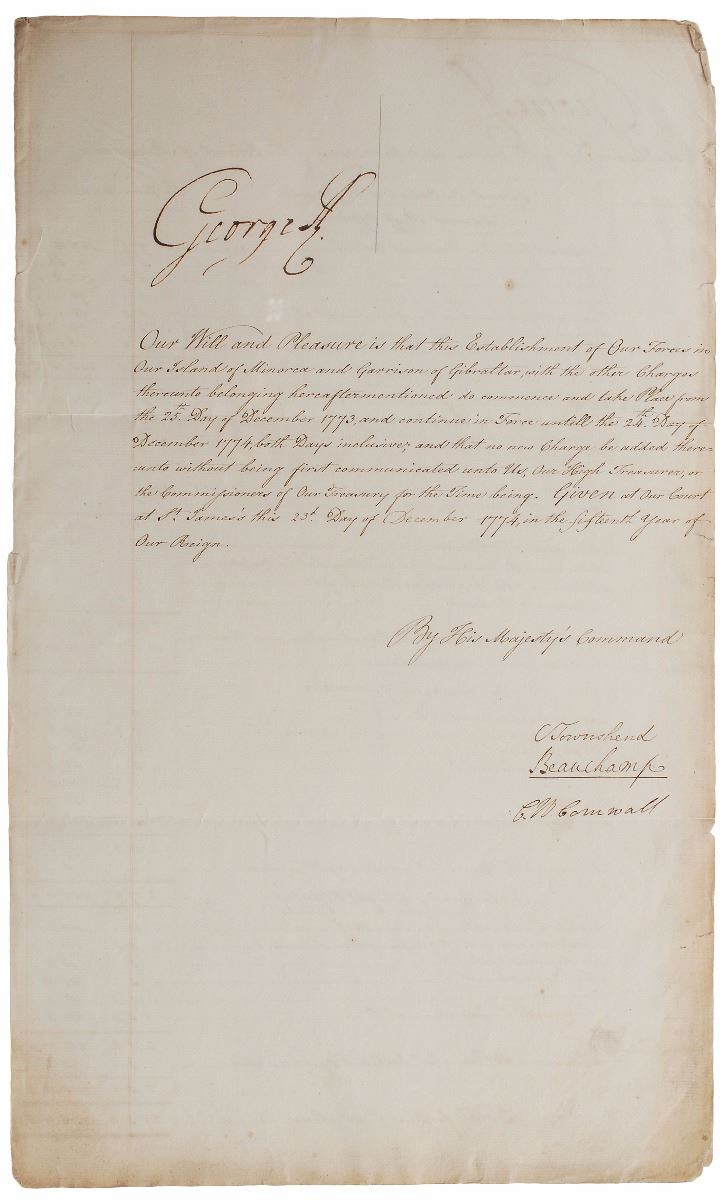 George R.
Our Will and Pleasure is that this Establishment of Our Forces in
Our Island of Minorca and Garrison of Gibraltar, with the other Charges
thereunto belonging hereaftermentioned do commence and take Place from
the 25th. Day of December 1773, and continue in Force untill the 24th. Day of
December 1774, both Days inclusive; and that no new Charge be added there=
unto without being first communicated unto Us, Our High Treasurer, or
the Commissioners of Our Treasury for the Time being. Given at Our Court
at St. James's this 23d. Day of December 1774, in the fifteenth Year of
Our Reign.
By His Majesty's Command
C Townshend
Beauchamp
C W Cornwall